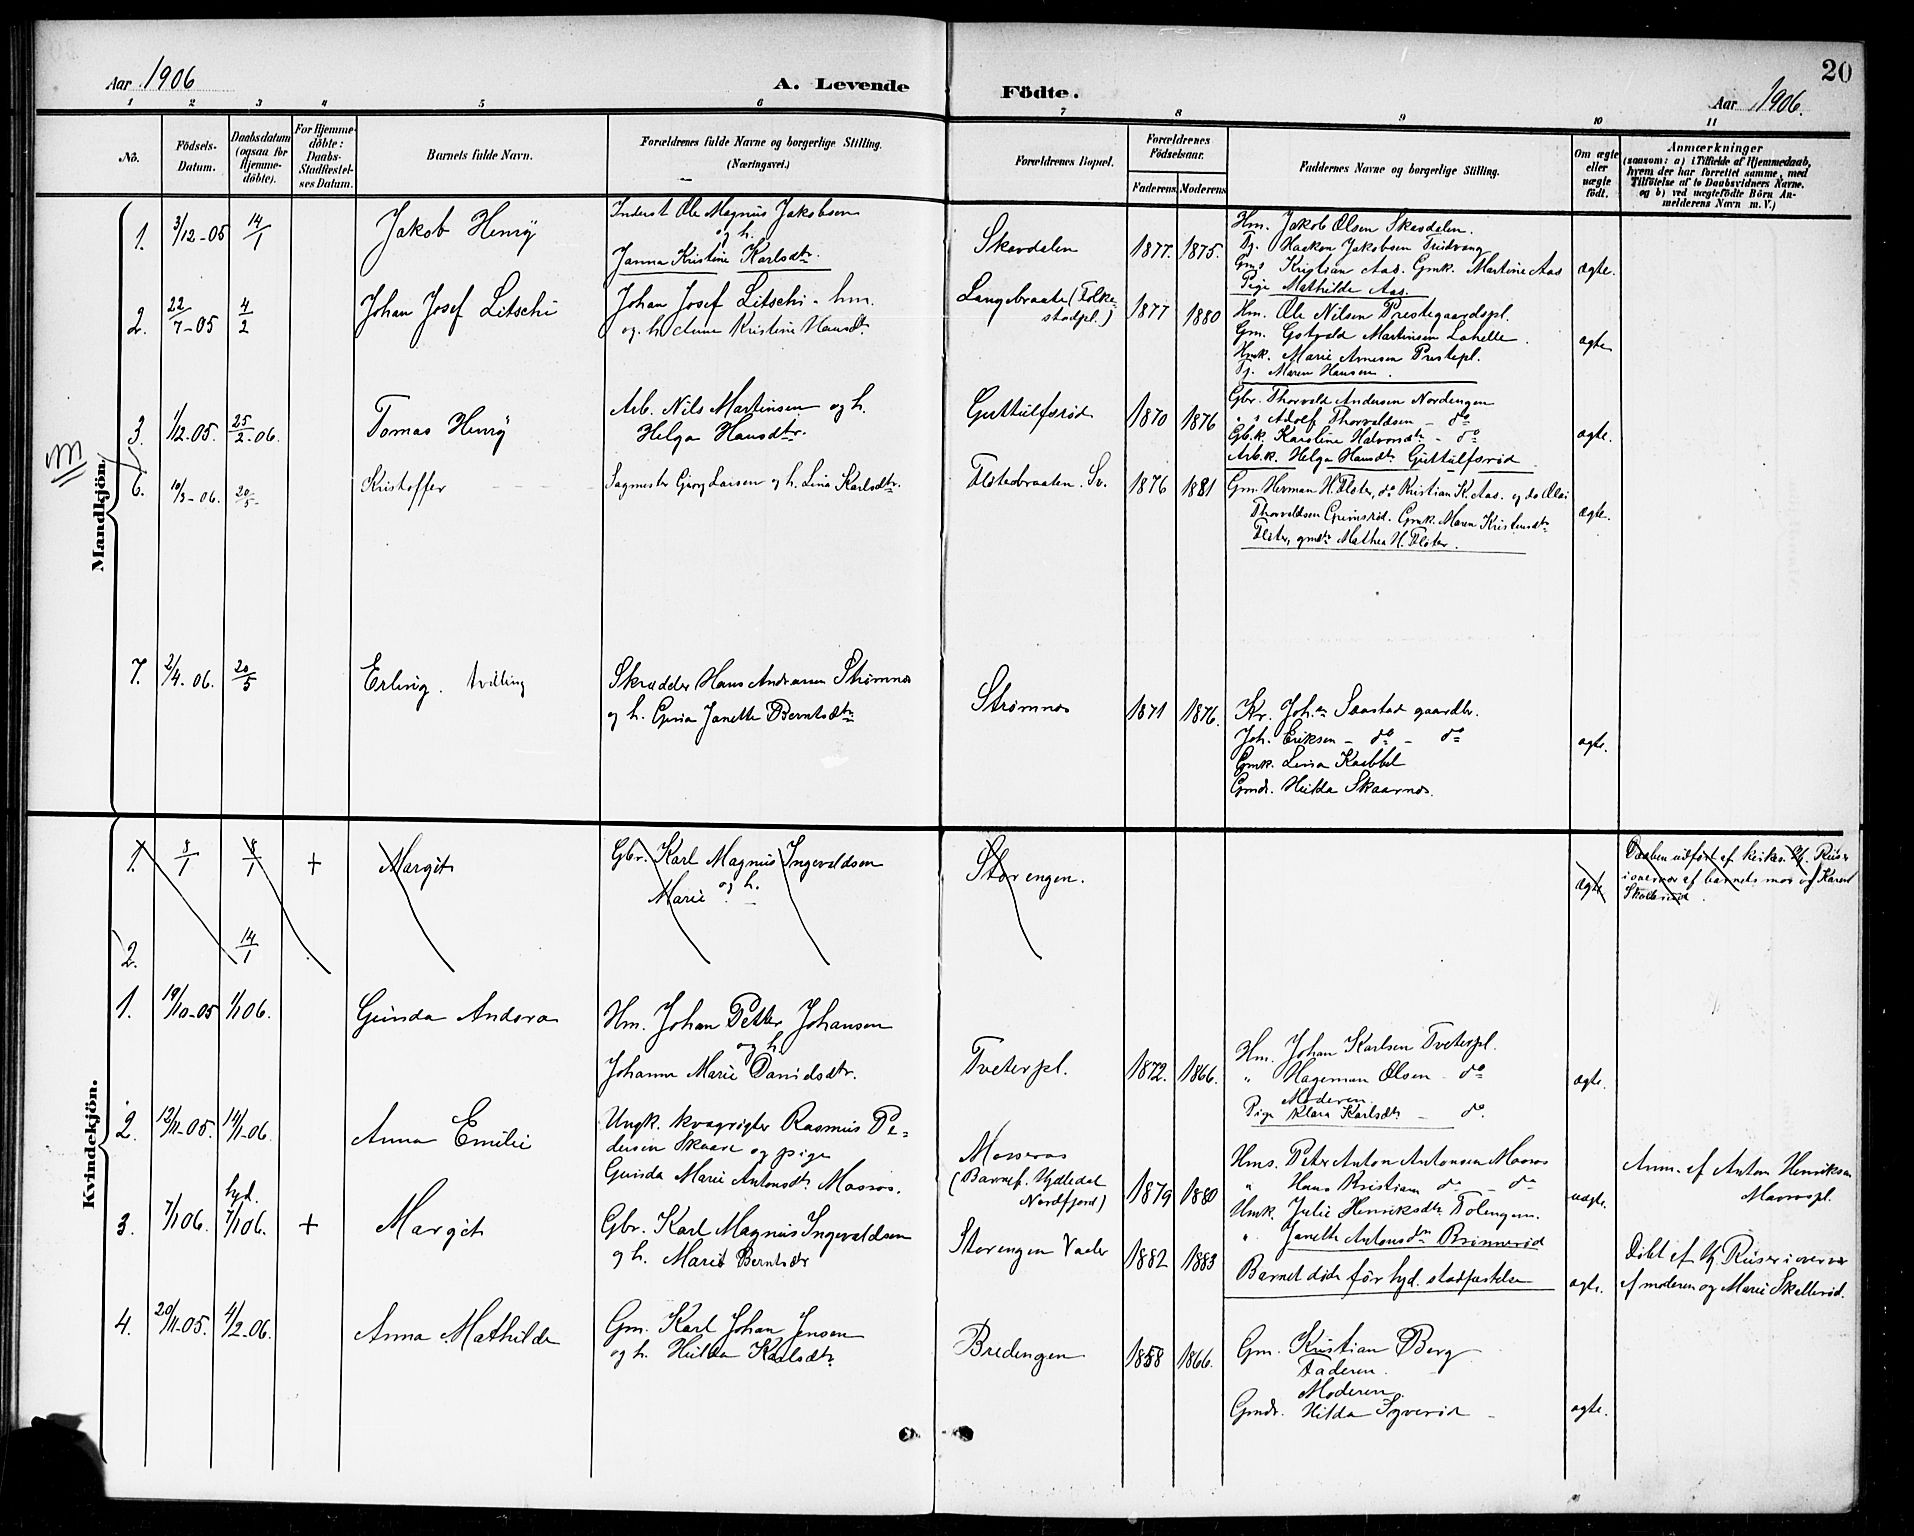 Aar 1906
A. Levende Födte.
Aar 1906.
20
1 2 3 4 5 6 7 8 9 10 11
No.
Födsels-Datum.
Daabsdatum (ogsaa for Hjemme-döbte).
For Hjemme-döbte: Daabs-Stadfæstel-ses Datum.
Barnets fulde Navn.
Forældrenes fulde Navne og borgerlige Stilling. (Næringsvei.)
Forældrenes Bopæl.
Forældrenes Födselsaar.
Faderens Moderens
Faddernes Navne og borgerlige Stilling.
Om ægte eller uægte födt.
Anmærkninger
(saasom: a) i Tilfælde af Hjemmedaab, hvem der har forrettet samme, med Tilföielse af to Daabsvidners Navne, og b) ved uægtefödte Börn An-melderens Navn m. V.)
Mandkjön.
1. 3/12-05 14/1 Jakob Henry
Inderst Ole Magnus Jakobsen
og h.
Janna Kristine Karlsdtr.
Skavdalen 1877. 1875.
Hm. Jakob Olsen Skavdalen.
Tj. Haakon Jakobsen Tridvang
Gms Kristian Aas. Gmk. Martine Aas
Pige Mathilde Aas.
ægte.
2. 22/7-05 4/2 Johan Josef Litschi
Johan Josef Litschi - hm.
og h. Anne Kristine Hansdtr
Langebraaten (Folke-
stadpl.) 1877 1880
Hm. Ole Nilsen Prestegaardspl.
Gm. Martinsen
Hmk. Marie Arnesen Prestepl.
Tj. Maren Hansen.
ægte
3. 1/12-05. 25/2-06. Tomas Henry
Arb. Nils Martinsen og h.
Helga Hansdtr.
Guttulfsrød 1870 1876
Gbr. Thorvald Andersen Nordengen
" " Adolf Thorvaldsen - do
Gbk. Karoline Halvorsdtr - do
Arb.k. Helga Hansdtr Guttulfsrød
ægte.
6. 10/3-06. 20/5- Kristoffer
Sagmester Georg Larsen og h. Lina Karlsdtr.
Flstadbraaten. Sv. 1876 1881
Gm. Herman H. Fløter, do Kristian K. Aas. og do Olai
Thorvaldsen Grimsrød. Gmk. Maren Kristensdtr
Fløter, gmdtr Mathea H. Fløter.
ægte.
7. 2/4-06. 20/5 Erling. tvilling
Skrædder Hans Andersen Strømnes
og h. Gina Janette Berntsdtr
Strømnes 1871 1876.
Kr. Johsn Saastad gaardbr.
Joh. Eriksen - do - do
Gmk. Lina Kabbel
Gmdr. Hulda Skaarnes.
ægte.
Kvindekjön.
1. 8/1 8/1 + Margit
Gbr. Karl Magnus Ingevaldsen
og h.
Marie
Storengen.
ægte
Daaben udført af kirkes. Hj. Riiser
i overvær af barnets mor og Karen
Skallerød.
2. 14/1
1. 19/10-05 1/1 06. Gunda Andora
Hm. Johan Petter Johansen
og h.
Johanne Marie Danielsdtr.
Tveterpl. 1872. 1866.
Hm. Johan Karlsen Tveterpl.
" Hageman Olsen - do
Moderen.
Pige Klara Karlsdtr - do.
ægte.
2. 12/11-05. 14/1-06. Anna Emilie
Ungk. kvægrøgter Rasmus Pe-
dersen Skaare og pige
Gunda Marie Antonsdtr Mosros.
Mosseros
(Barnef. Hyllestad
Nordfjord) 1879 1880
Hms. Peter Anton Antonsen Mosros
" Hans Kristian do - do
Hmk. Julie Henriksdtr Tolengen.
" Janette Antonsdtr Brinnerød
uægte.
Anm. af Anton Henriksen
Mosrospl.
3. 7/1 06. hjd. 7/1 06. + Margit
Gbr. Karl Magnus Ingevaldsen
og h. Marie Berntsdtr
Storengen Vaaler 1882 1883
Barnet døde før hjd. stadfæstelse
ægte.
Døbt af Hj. Riiser i overvær
af moderen og Marie Skallerød.
4. 20/11-05. 4/2-06. Anna Mathilde
Gm. Karl Johan Jensen
og h. Hulda Karlsdtr
Bredengen 1858 1866.
Gm. Kristian Berg
Faderen.
Moderen.
Gmdr. Hilda Syverød
ægte.